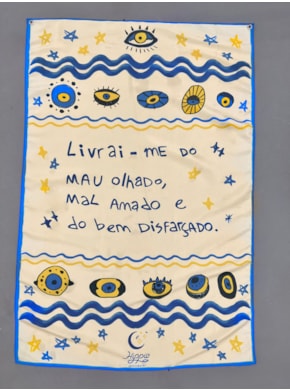 Livrai-ME DO
MAU olhado,
MAL AMADO e
do bem DISFARÇADO.